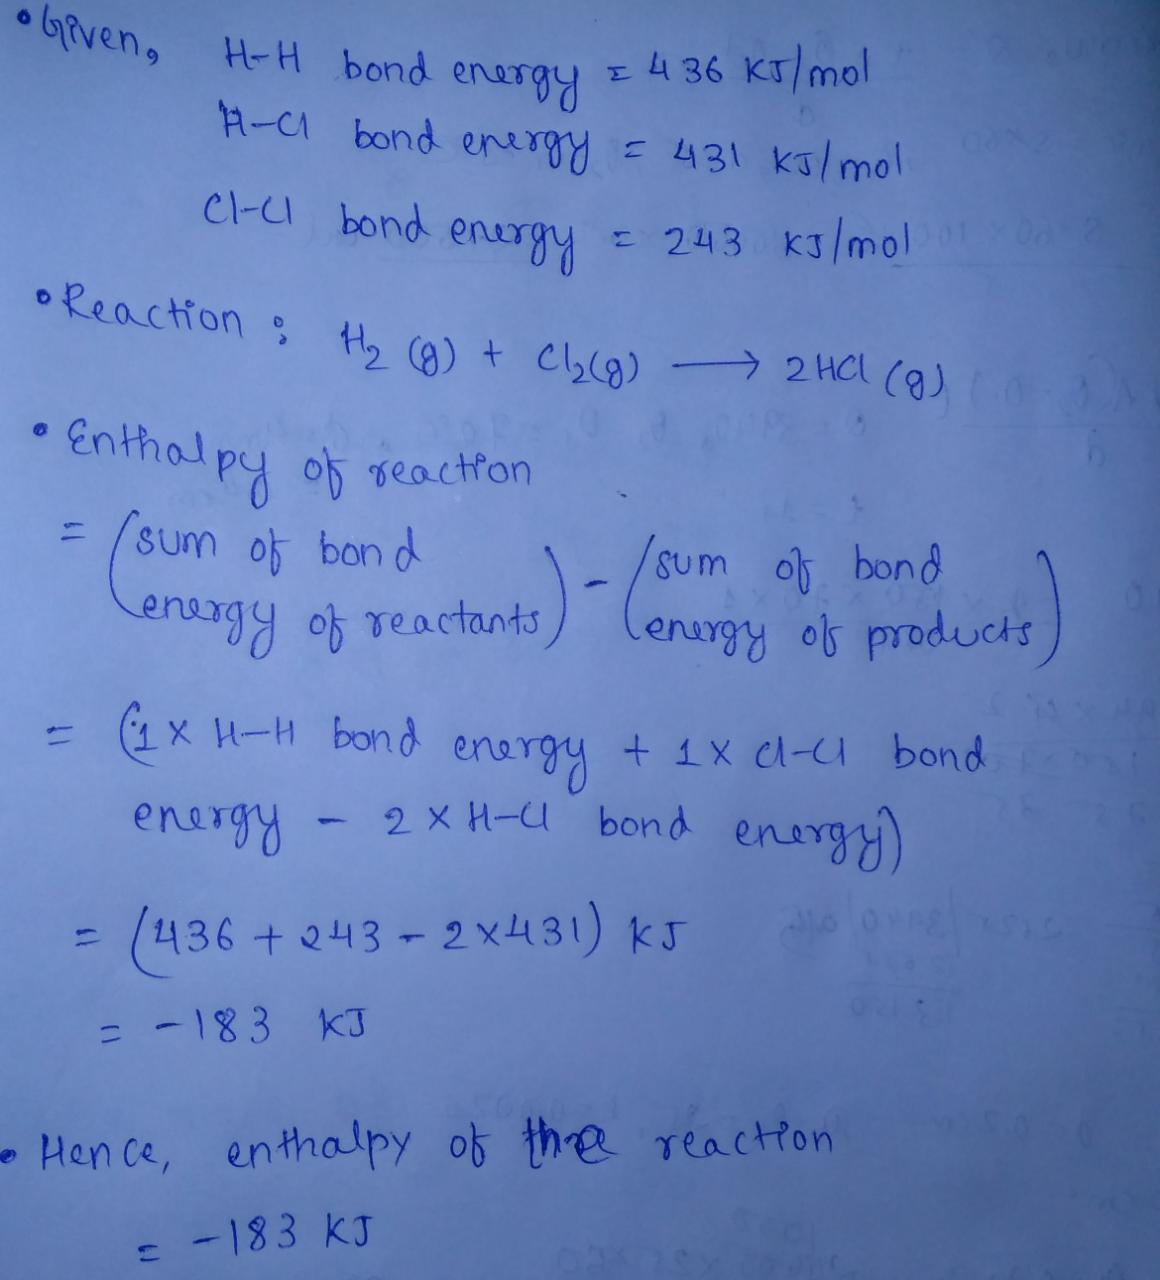 • Given, H-H bond energy = 436 KJ/mol
H-Cl bond energy = 431 KJ/mol
Cl-Cl bond energy = 243 KJ/mol
• Reaction : H₂ (g) + Cl₂(g) ⟶ 2HCl (g)
• Enthalpy of reaction
= (sum of bond energy of reactants) - (sum of bond energy of products)
= (1 x H-H bond energy + 1 x Cl-Cl bond
energy - 2 x H-Cl bond energy)
= (436 + 243 - 2x431) KJ
= -183 KJ
• Hence, enthalpy of the reaction
= -183 KJ